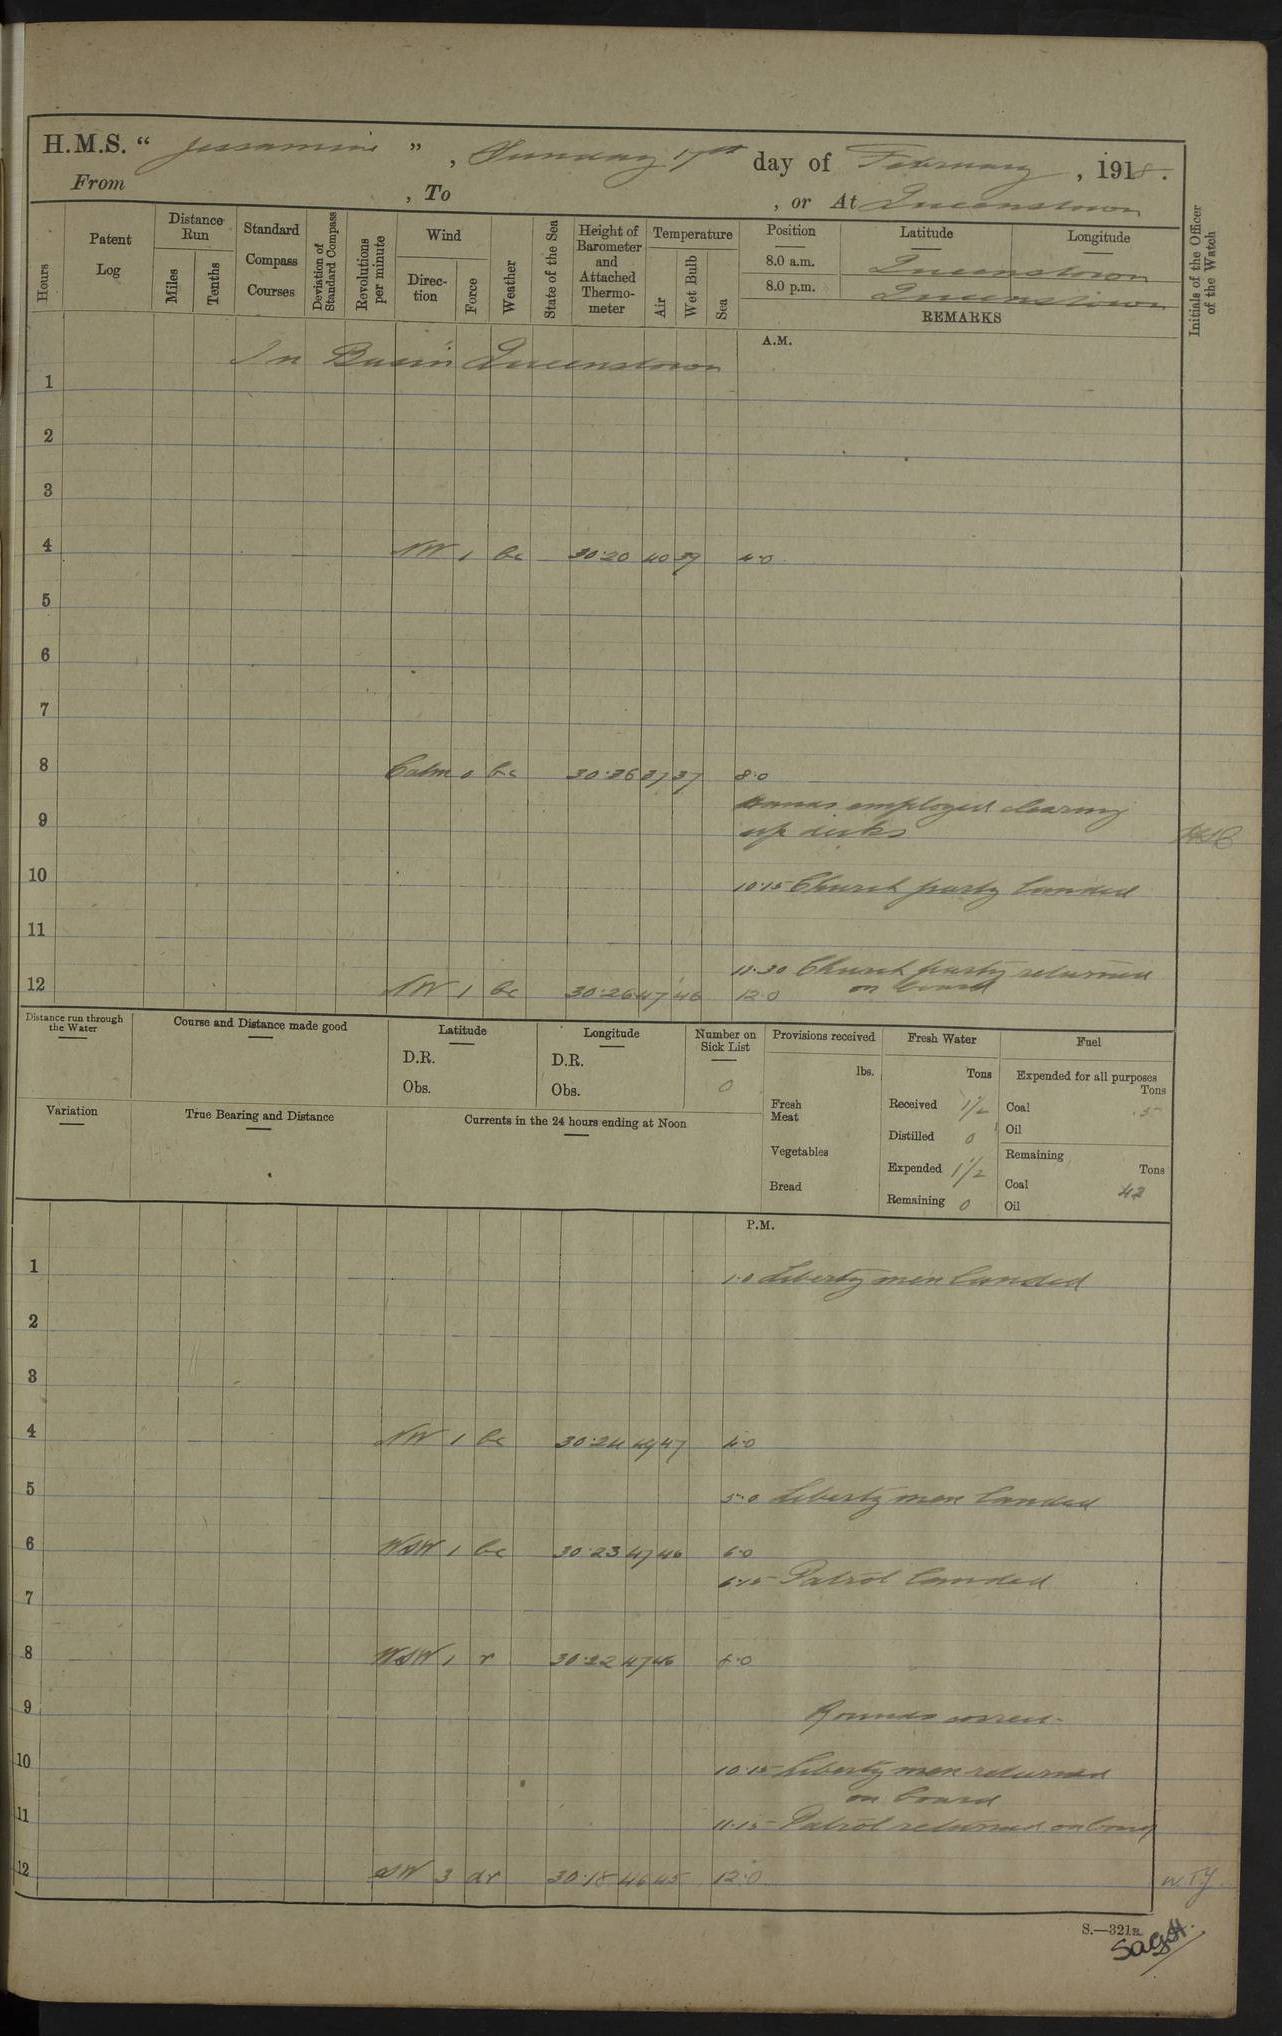 H.M.S. “ Jessamine ” , Sunday 17th day of February , 1918.
From , To , or At Queenstown
Hours
Patent Log
Distance Run
Miles
Tenths
Standard Compass Courses
Deviation of Standard Compass
Revolutions per minute
Wind
Direc-tion
Force
Weather
State of the Sea
Height of Barometer and Attached Thermo-meter
Temperature
Air
Wet Bulb
Sea
Position Latitude Longitude
8.0 a.m. Queenstown
8.0 p.m. Queenstown
REMARKS
Initials of the Officer of the Watch
A.M.
In Basin Queenstown
1
2
3
4 NW 1 bc 30·20 40 39 4·0
5
6
7
8 Calm 0 bc 30·26 37 37 8·0
Hands employed clearing
9 up decks
10 10·15 Church party landed
11
11·30 Church party returned
on board
12 NW 1 bc 30·26 47 46 12·0
Distance run through the Water
Course and Distance made good
Latitude
D.R.
Obs.
Longitude
D.R.
Obs.
Number on Sick List
0
Provisions received
lbs.
Fresh Meat
Vegetables
Bread
Fresh Water
Tons
Received 1½
Distilled 0
Expended 1½
Remaining 0
Fuel
Expended for all purposes
Tons
Coal .5
Oil
Remaining
Tons
Coal 42
Oil
Variation
True Bearing and Distance
Currents in the 24 hours ending at Noon
P.M.
1 1·0 Liberty men landed
2
3
4 NW 1 bc 30·24 49 47 4·0
5 5·0 Liberty men landed
6 WSW 1 bc 30·23 47 46 6·0
6·15 Patrol landed
7
8 WSW 1 r 30·22 47 46 8·0
9 Rounds correct
10 10·15 Liberty men returned
on board
11 11·15 Patrol returned on board
12 SW 3 dr 30·18 46 45 12·0
S.—321B.